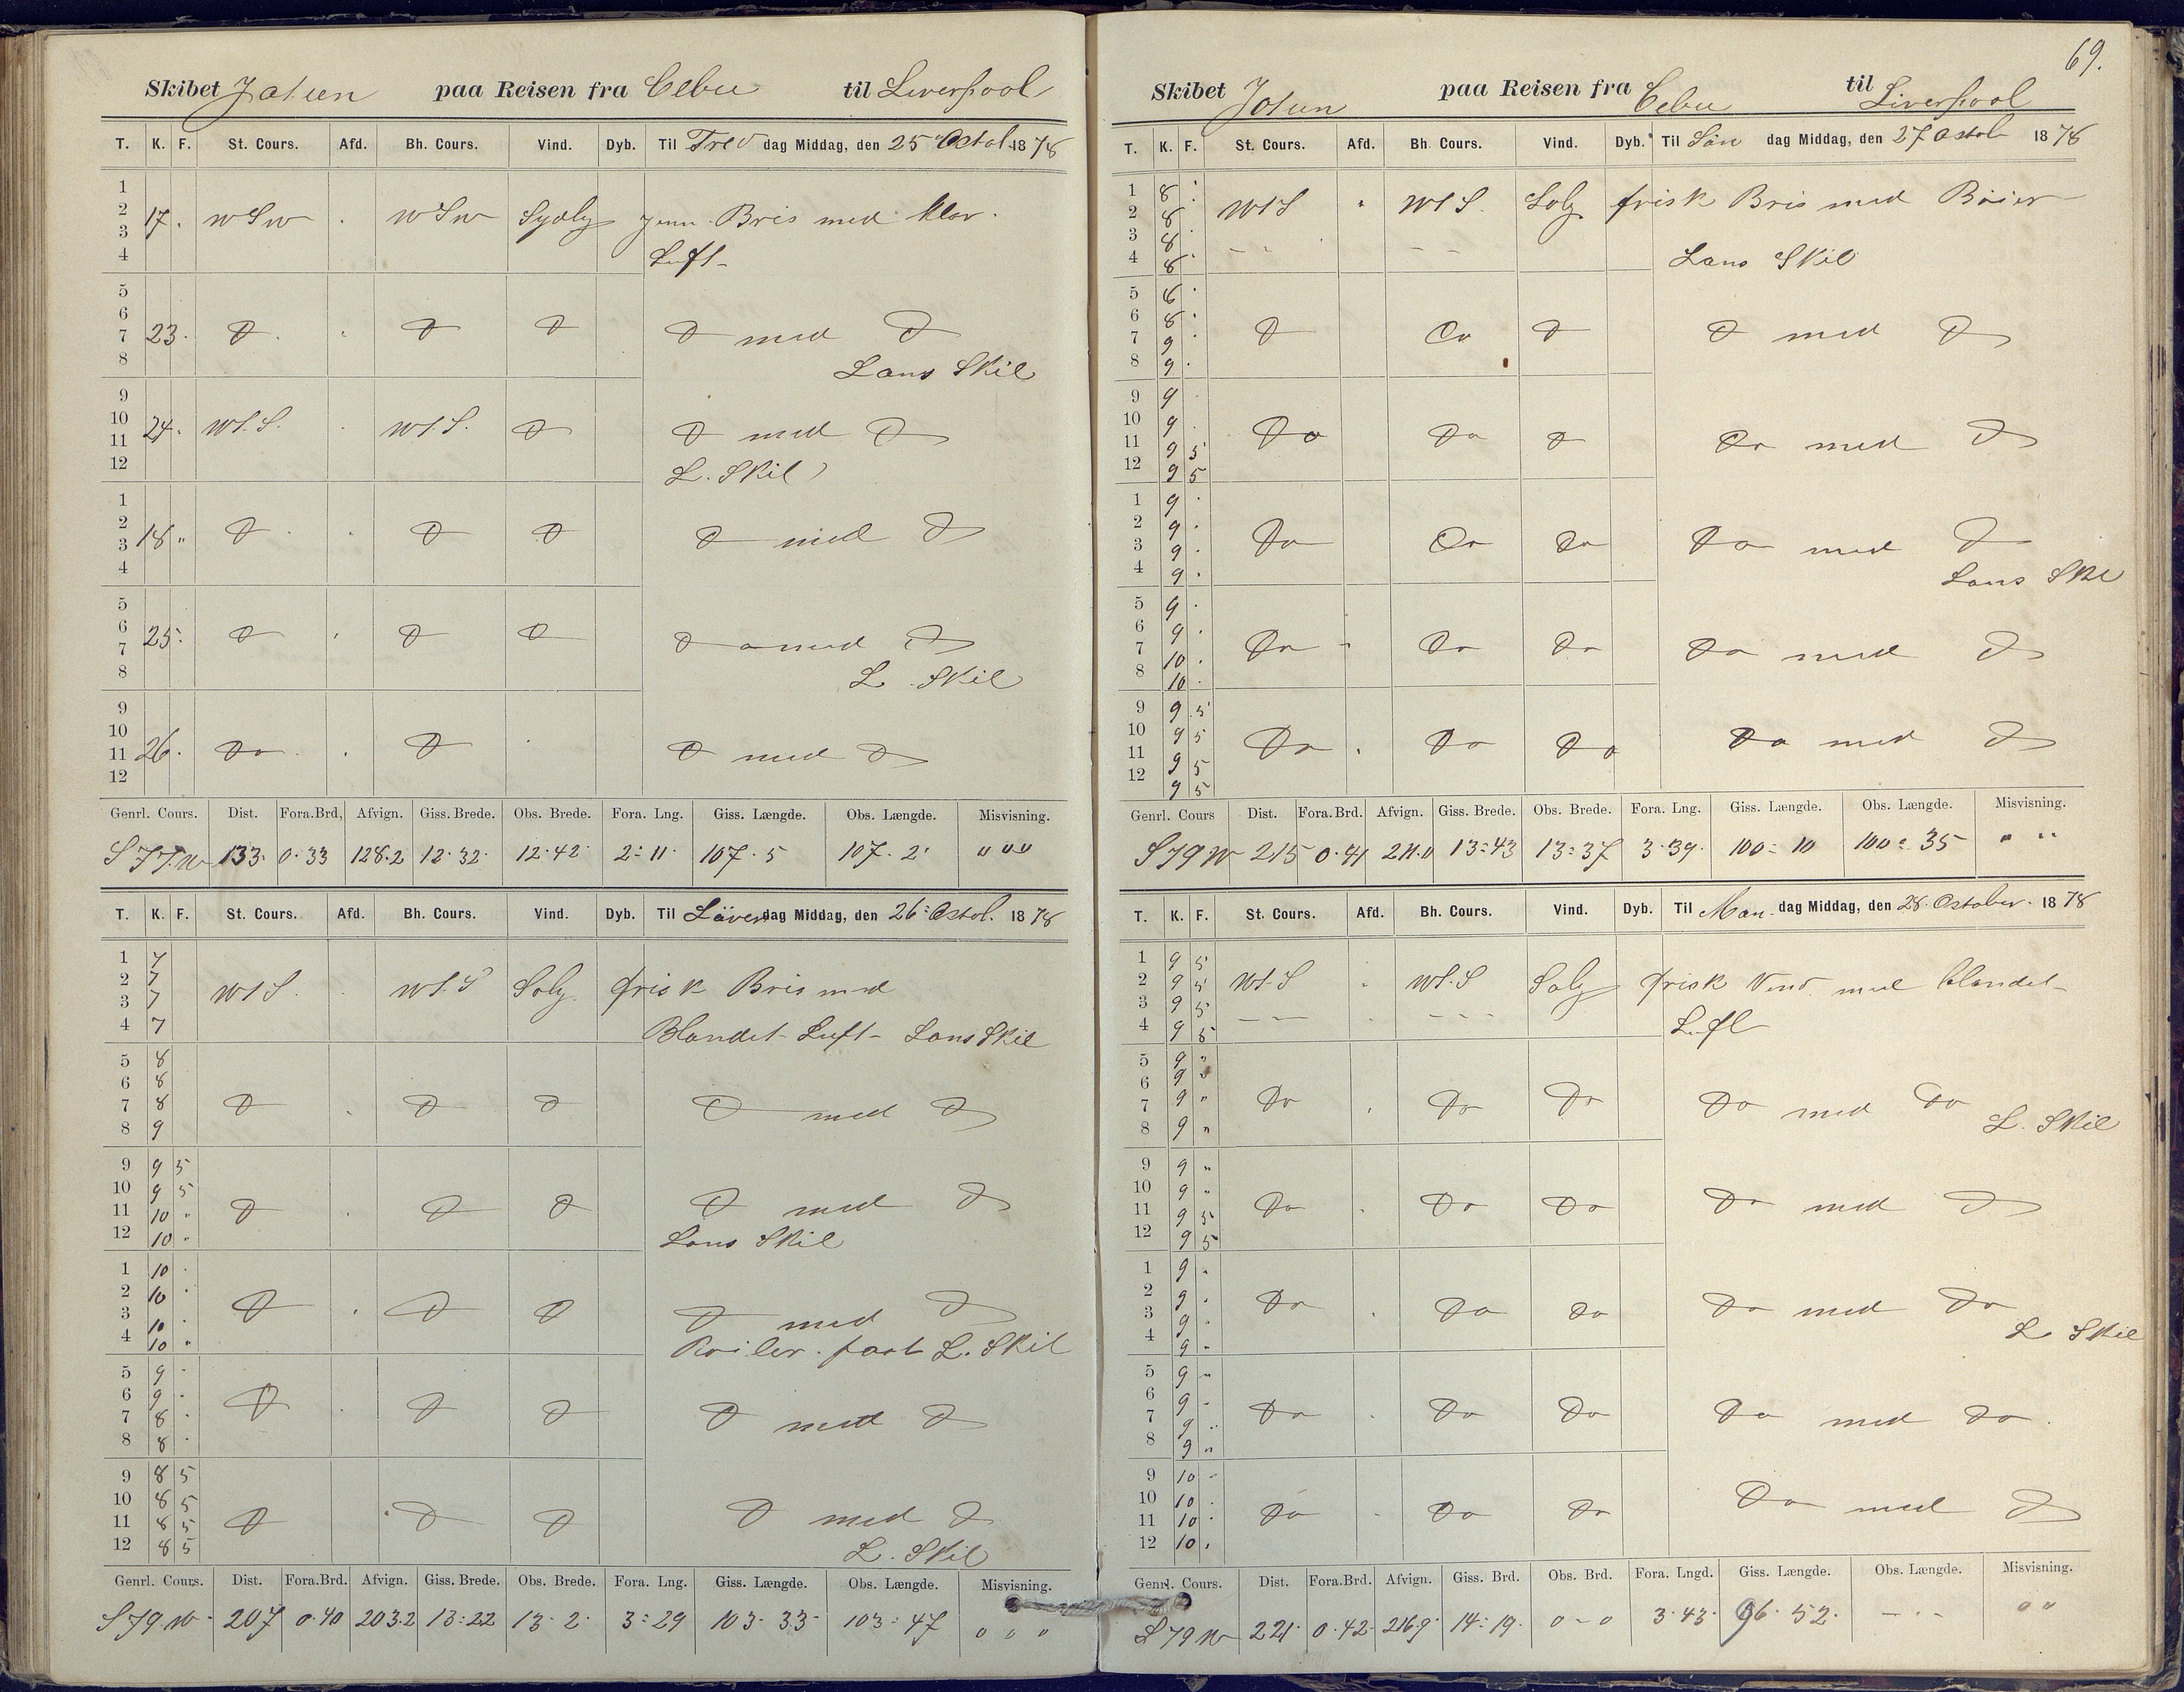 Skibet Jotun paa Reisen fra Cebu til Liverpool
T. K. F. St. Cours. Afd. Bh. Cours. Vind. Dyb. Til Fre dag Middag, den 25 Octob 1878
1
2 17 . WSW . WSW Sydlg Jevn Bris med klar
3
4 Luft
5
6
7 23 . D . D D D med D
8 Lans Skil
9
10
11 24 . WtS. . WtS. D D med D
12 L. Skil
1
2
3 18 " D . . D D D med D
4
5
6
7 25 . D . D D D med D
8 L. Skil
9
10
11 26 . Do . D . D med D
12
Genrl. Cours. Dist. Fora.Brd, Afvign. Giss. Brede. Obs. Brede. Fora. Lng. Giss. Længde. Obs. Længde. Misvisning.
S 77 W 133 0.33 128.2 12.32 12.42 2:11 107.5 107.2 " " "
T. K. F. St. Cours. Afd. Bh. Cours. Vind. Dyb. Til Löver dag Middag, den 26 Octob. 1878
1 7
2 7 WtS. WtS Solg frisk Bris med
3 7
4 7 Blandet Luft Lans Skil
5 8
6 8
7 8 D . D D D med D
8 9
9 9 5
10 9 5
11 10 " D . D D D med D
12 10 " Lans Skil
1 10 .
2 10 .
3 10 . D . D D D med D
4 10 " L. Skil
5 9 .
6 9 .
7 8 . D . D D D med D
8 8 .
9 8 5
10 8 5
11 8 5 D . D D D med D
12 8 5 L. Skil
Genrl. Cours. Dist. Fora.Brd. Afvign. Giss. Brede. Obs. Brede. Fora. Lng. Giss. Længde. Obs. Længde. Misvisning.
S 79 W 207 0.40 203.2 13:22 13.2 3:29 103.33 103:47 " " "
69.
Skibet Jotun paa Reisen fra Cebu til Liverpool
T. K. F. St. Cours. Afd. Bh. Cours. Vind. Dyb. Til Sön dag Middag, den 27 Octob 1878
1 8 .
2 8 WtS " WtS. Solg frisk Bris med Böier
3 8 - - - -
4 8 . Lans Skil
5 8 .
6 8 .
7 9 . D Do D D med D
8 9 .
9 9 .
10 9 .
11 9 5 Do Do D Do med D
12 9 5
1 9 .
2 9 .
3 9 . Do Do Do Do med D
4 9 . Lans Skil
5 9 .
6 9 .
7 10 . Do - Do Do Do med D
8 10 .
9 9 5
10 9 5
11 9 5 Do . Do Do Do med D
12 9 5
Genrl. Cours Dist. Fora.Brd. Afvign. Giss. Brede. Obs. Brede. Fora. Lng. Giss. Længde. Obs. Længde. Misvisning.
S 79 W 215 0.41 211.0 13:43 13:37 3.39 100:10 100:35 " "
T. K. F. St. Cours. Afd. Bh. Cours. Vind. Dyb. Til Man dag Middag, den 28. October. 1878
1 9 5
2 9 5 WtS . WtS Solg frisk Vind med blandet
3 9 5
4 9 5 - - - . - - - Luft
5 9 "
6 9 "
7 9 " Do . Do Do Do med Do
8 9 " L. Skil
9 9 "
10 9 "
11 9 5 Do . Do Do Do med D
12 9 5
1 9 "
2 9 .
3 9 . Do . Do Do Do med Do
4 9 . L Skil
5 9 "
6 9 .
7 9 . Do . Do Do Do med Do.
8 9 "
9 10 .
10 10 .
11 10 . Do . Do Do Do med D
12 10 .
Genrl. Cours. Dist. Fora.Brd. Afvign. Giss. Brd. Obs. Brd. Fora. Lngd. Giss. Længde. Obs. Længde. Misvisning.
S 79 W 221 0.42 216.9 14:19 0-0 3.43 96.52 - - - " "